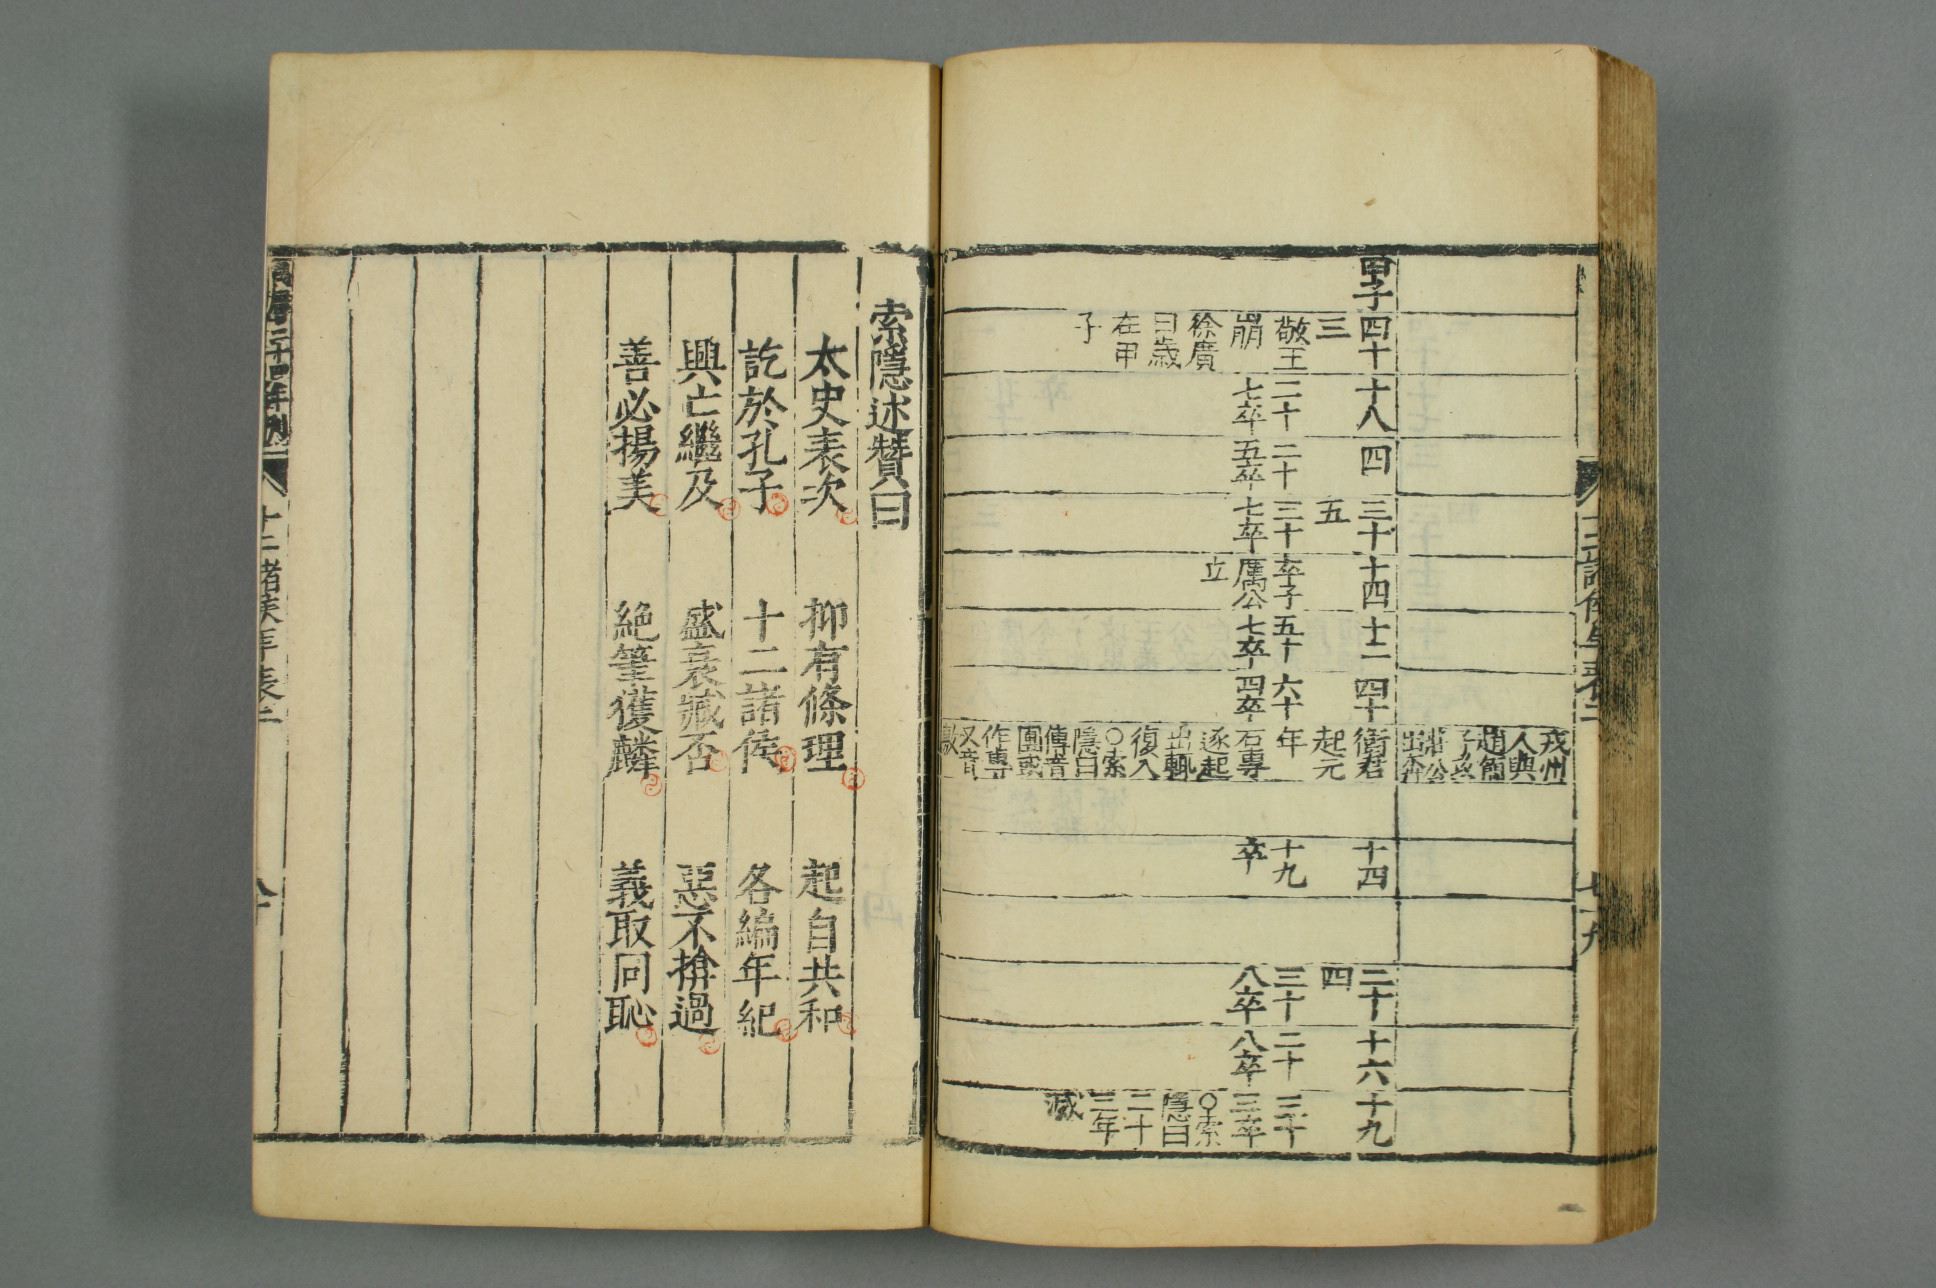 十二諸侯年表二
七十九
甲子
四十
三
敬王
崩
徐廣
曰歲
在甲
子
十八
二十
七卒
四
二十
五卒
三十
五
三十
七卒
十四
卒子
厲公
立
十二
五十
七卒
四十
六十
四卒
戎州
人與
趙簡
子攻
莊公
出奔
衛君
起元
年
石專
逐起
出輒
復入
○索
隱曰
傅音
圃或
作專
又音
十四
十九
卒
二十
四
三十
八卒
十六
二十
八卒
十九
三十
三卒
○索
隱曰
二十
三年
滅
索隱述贊曰
太史表次 抑有條理 起自共和
訖於孔子 十二諸侯 各編年紀
興亡繼及 盛衰臧否 惡不揜過
善必揚美 絶筆獲麟 義取同恥
萬曆二十四年刊
十二諸侯年表二
八十